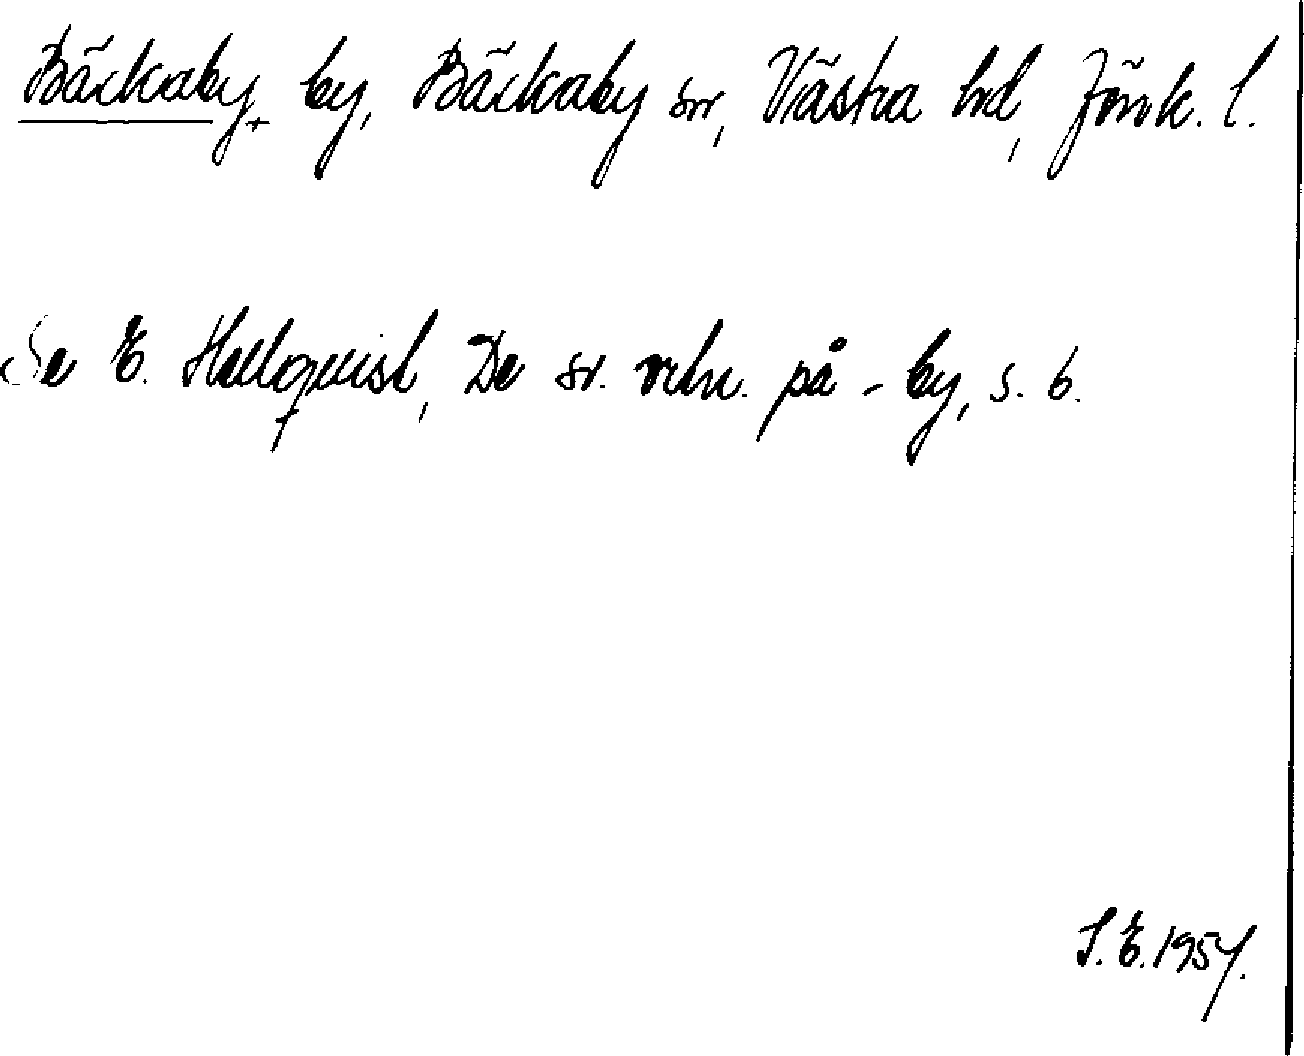 Bäckaby + by, Bäckaby sn, Västra hd, Jönk. l.
Se E. Hellquist, De sv. ortn. på -by, s. 6.
S. E. 1954.